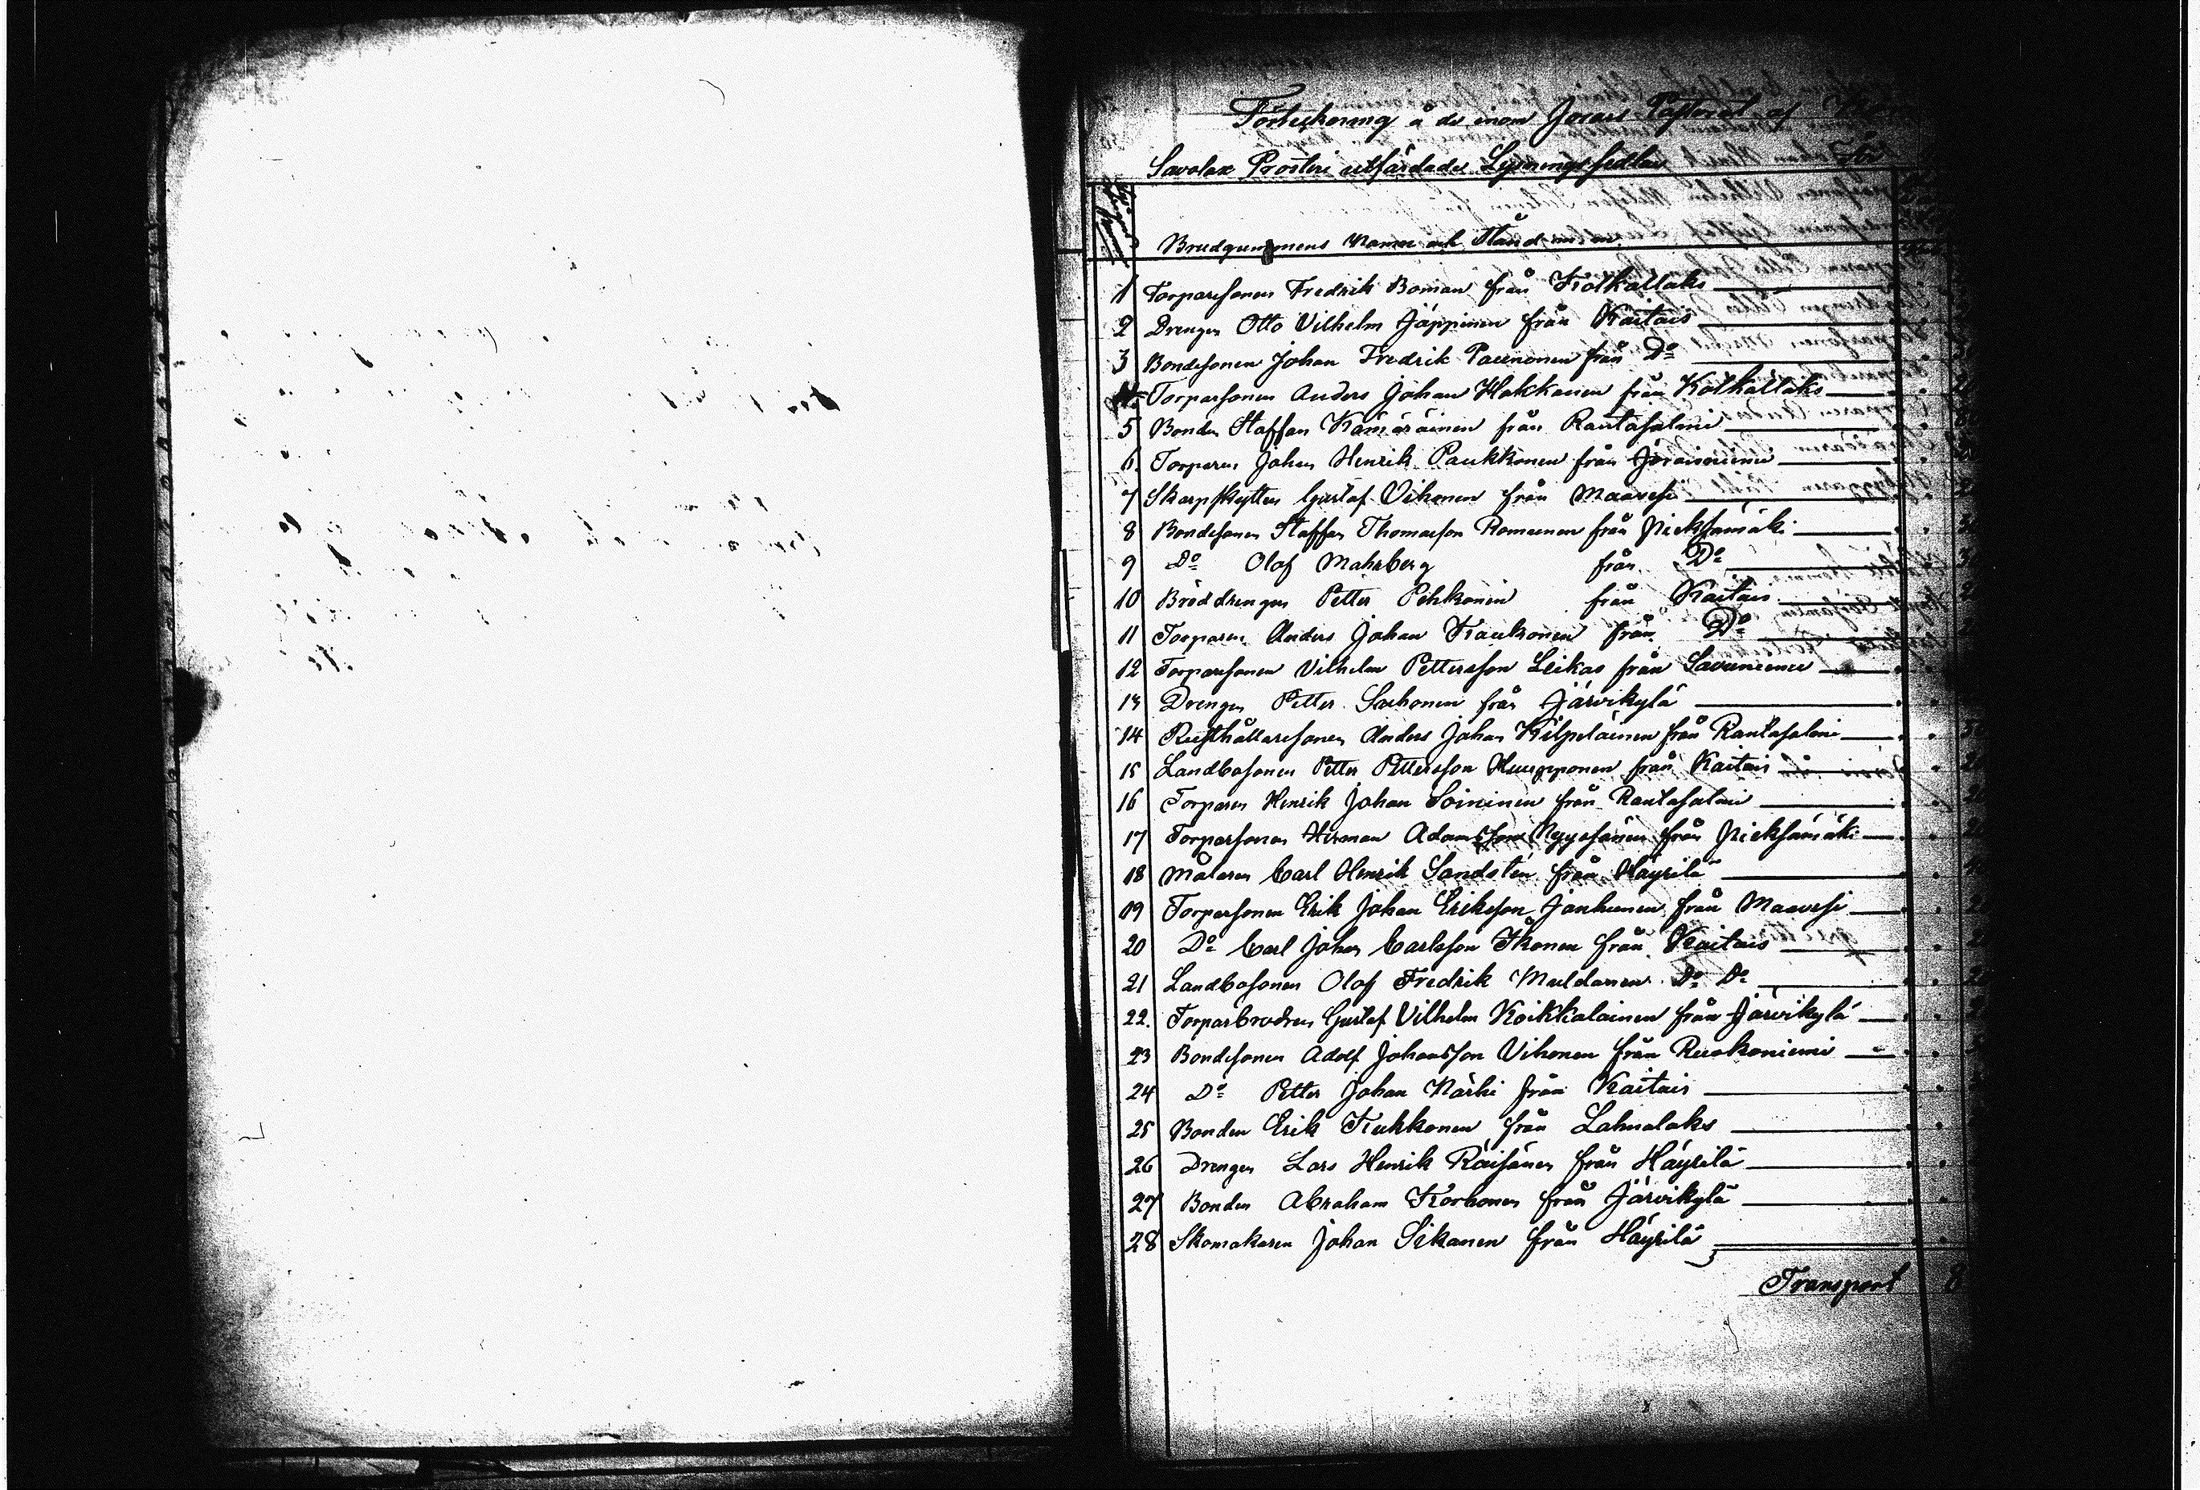 Förteckning å de inom Jorois Pastorat af
Savolax Prosteri utfärdade Lysningssedlar för
Brudgummens Namn och Stånd
1 Torparesonen Fredrik Boman från Kolkallaks
2 Drengen Otto Vilhelm Jäppinen från Kaitais
3 Bondesonen Johan Fredrik Paunonen från Do
4 Torparsonen Anders Johan Hakkanen från Kolkallaks
5 Bonden Staffan Kämäräinen från Rantasalmi
6. Torparen Johan Henrik Paukkonen från Joroisniemi
7 Skarpskytten Gustaf Vihonen från Maavesi
8 Bondesonen Staffan Thomasson Romunen från Pieksämäki
9 Do Olof Mahrberg från Do
10 Bröddrengen Petter Pehkonen från Kaitais
11 Torparen Anders Johan Kaukonen från Do
12 Torparesonen Vilhelm Pettersson Leikas från Savuniemi
13 Drengen Petter Sarhonen från Järvikylä
14 Rusthållaresonen Anders Johan Kilpeläinen från Rantasalmi
15 Landbosonen Petter Pettersson Humpponen från Kaitais
16 Torparen Henrik Johan Soininen från Rantasalmi
17 Torparsonen Herman Adamsson Nyyssönen från Pieksämäki
18 Målaren Carl Henrik Sandsten från Häyrilä
19 Torparsonen Erik Johan Eriksson Janhunen från Maavesi
20 Do Carl Johan Carlsson Ikonen från Kaitais
21 Landbosonen Olof Fredrik Muldanen Do Do
22. Torparbrodren Gustaf Vilhelm Koikkalainen från Järvikylä
23 Bondesonen Adolf Johansson Vihonen från Ruokoniemi
24 Do Petter Johan Närhi från Kaitais
25 Bonden Erik Kukkonen från Lahnalaks
26 Drengen Lars Henrik Räisänen från Häyrilä
27 Bonden Abraham Korhonen från Järvikylä
28 Skomakaren Johan Sikanen från Häyrilä
Transport 8